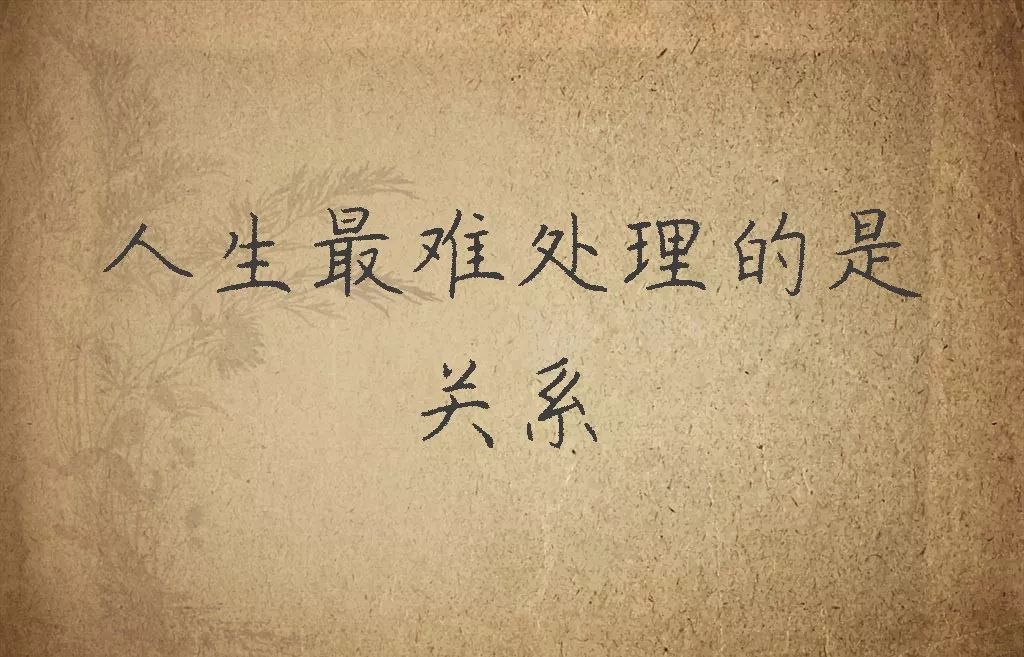 人生最难处理的是
关系